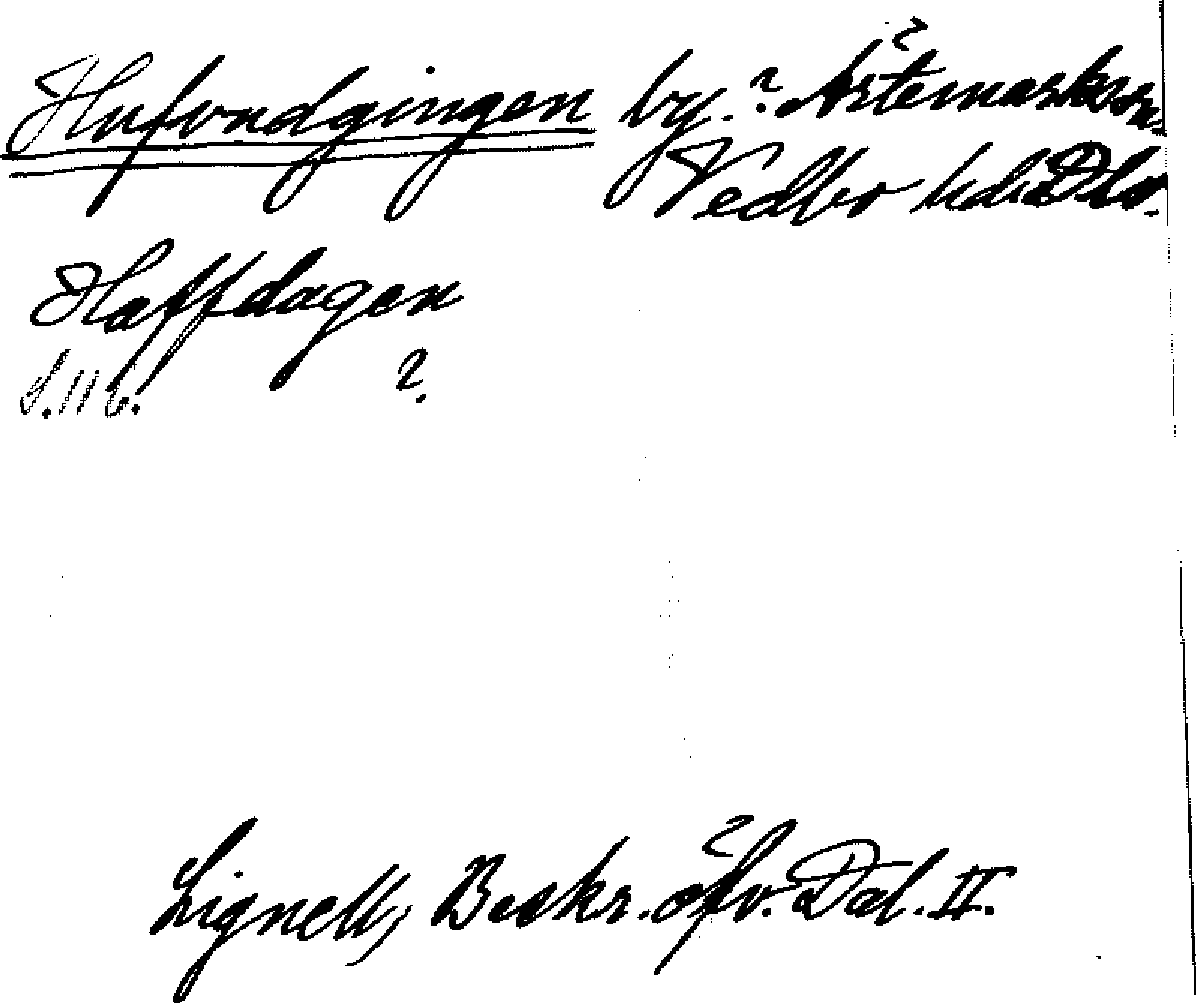 Hufvudgingen by? Ärtemarks sn.
Vedbo hd. Dlr.
Haffdagen
S. 116. ?
Lignell, Beskr. öfv. Dal. II.